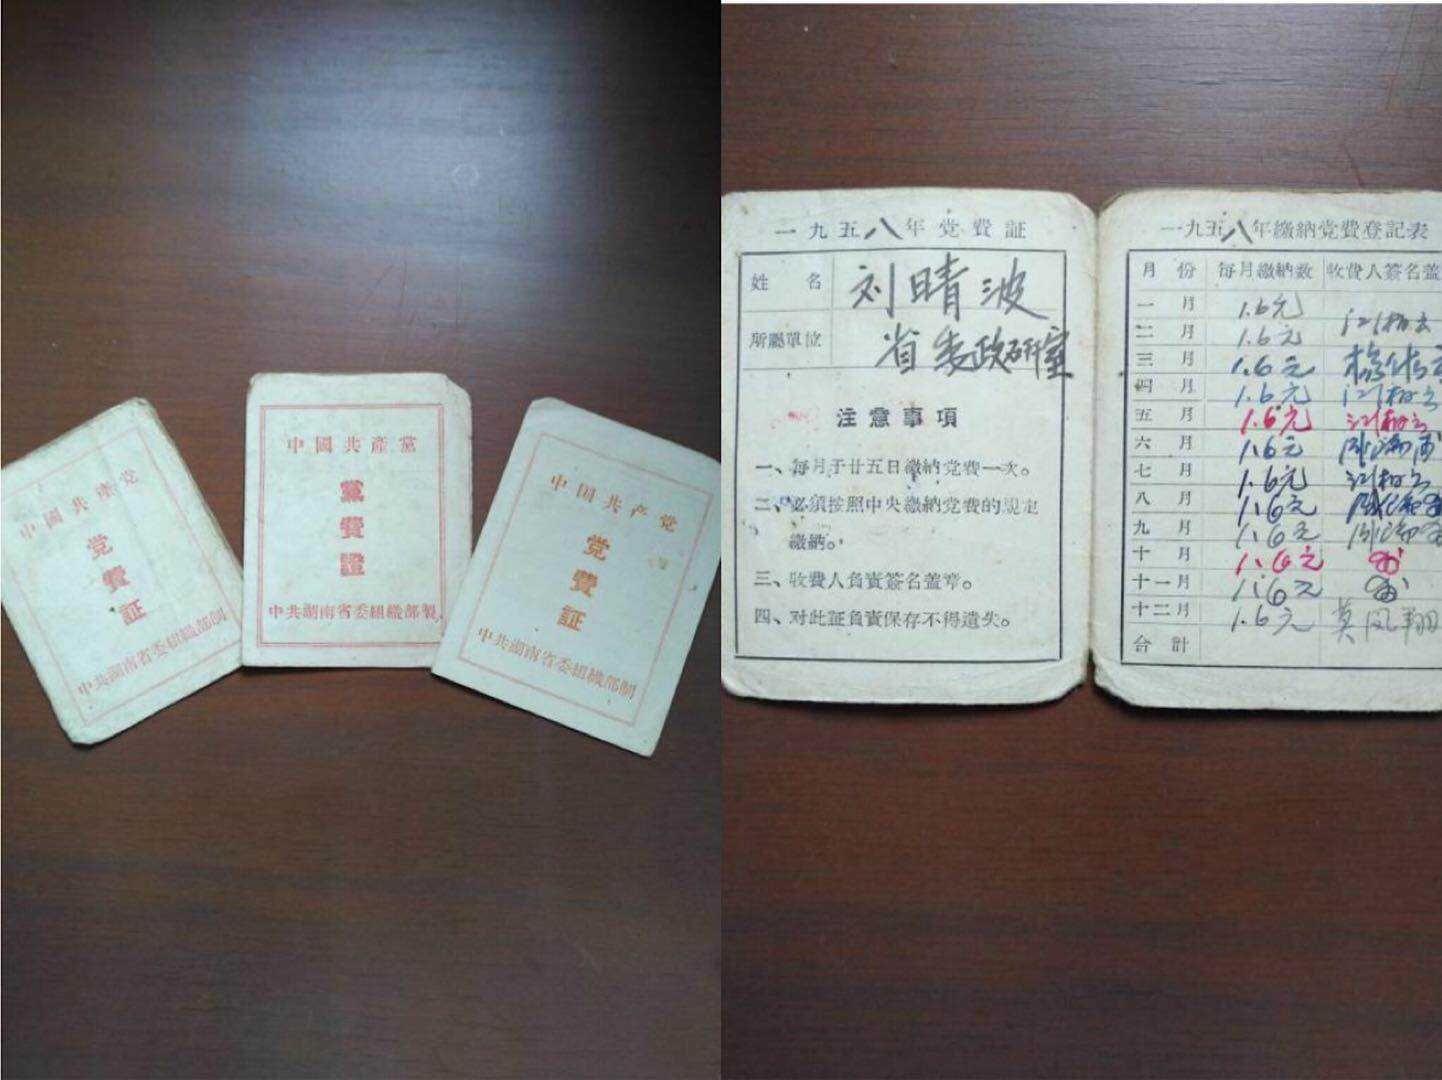 中國共產党
党
費
証
中共湖南省委組織部制
中國共產黨
黨
費
證
中共湖南省委組織部製
中国共产党
党
費
証
中共湖南省委組織部制
一九五八年党費証
姓名 刘晴波
所屬單位 省委政研室
注意事項
一、每月于廿五日繳納党費一次。
二、必須按照中央繳納党費的規定
繳納。
三、收費人負責簽名盖章。
四、对此証負責保存不得遺失。
一九五八年繳納党費登記表
月份 每月繳納数 收費人簽名盖
一月 1.6元
二月 1.6元
三月 1.6元
四月 1.6元
五月 1.6元
六月 1.6元
七月 1.6元
八月 1.6元
九月 1.6元
十月 1.6元
十一月 1.6元
十二月 1.6元 莫凤翔
合計